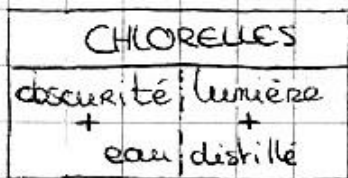 CHLORELLES
obscurité lumière
+ +
eau distillé